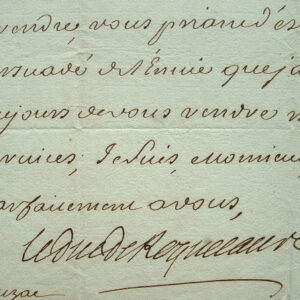 rendre, vous priant d'es
rsuadé de l'Envie que j'a
ujours de vous rendre
ervices, Je suis, Monsieu
arfaitement a vous,
le duc de Roquelaure
uzac